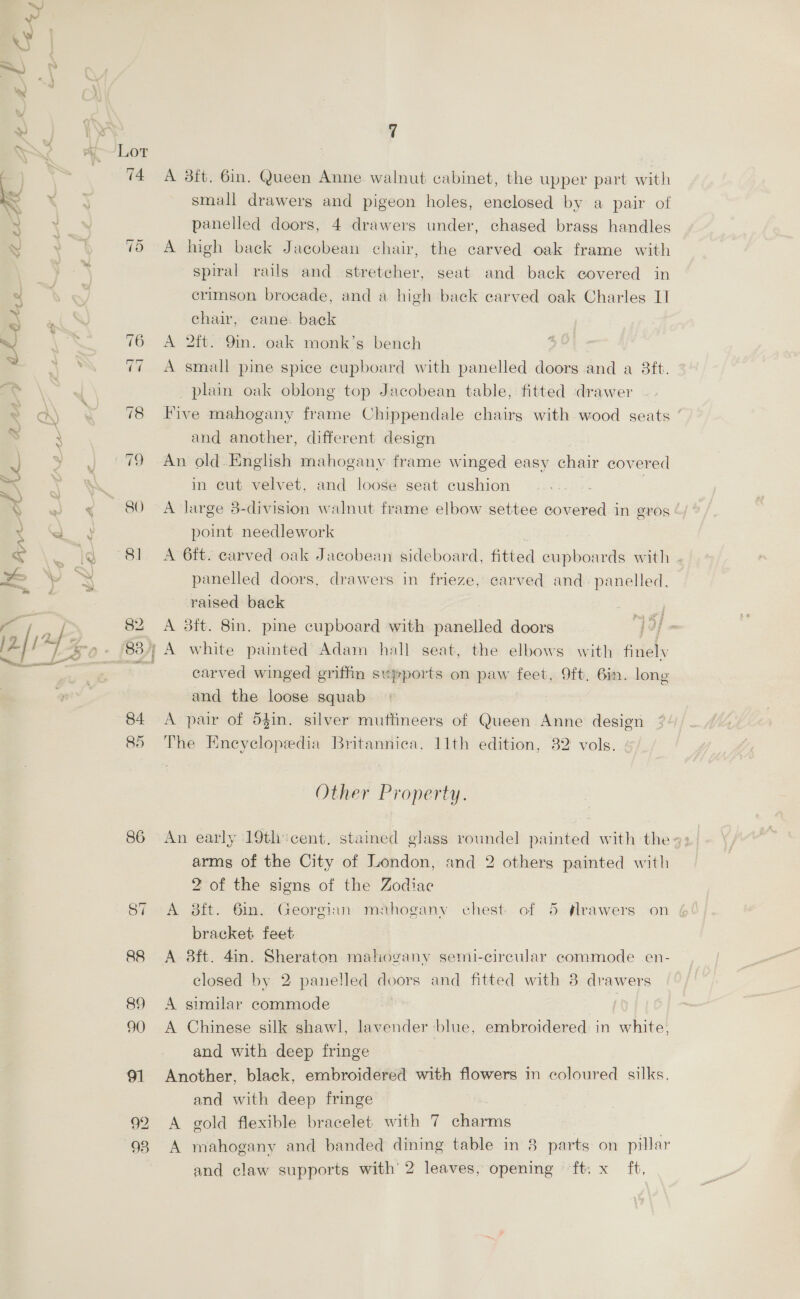 7
Lot
74 A 3ft. 6in. Queen Anne walnut cabinet, the upper part with
small drawers and pigeon holes, enclosed by a pair of
panelled doors, 4 drawers under, chased brass handles
75 A high back Jacobean chair, the carved oak frame with
spiral rails and stretcher, seat and back covered in
crimson brocade, and a high back carved oak Charles II
chair, cane back
76 A 2ft. 9in. oak monk's bench
77 A small pine spice cupboard with panelled doors and a 3ft.
plain oak oblong top Jacobean table, fitted drawer
78 Five mahogany frame Chippendale chairs with wood seats
and another, different design
79 An old English mahogany frame winged easy chair covered
in cut velvet, and loose seat cushion
80 A large 3-division walnut frame elbow settee covered in gros
point needlework
81 A 6ft. carved oak Jacobean sideboard, fitted cupboards with
panelled doors, drawers in frieze, carved and panelled,
raised back
82 A 3ft. 8in. pine cupboard with panelled doors
83 A white painted Adam hall seat, the elbows with finely
carved winged griffin supports on paw feet, 9ft. 6in. long
and the loose squab
84 A pair of 5½in. silver muffineers of Queen Anne design
85 The Encyclopædia Britannica, 11th edition, 32 vols.
Other Property.
86 An early 19th cent. stained glass roundel painted with the
arms of the City of London, and 2 others painted with
2 of the signs of the Zodiac
87 A 3ft. 6in. Georgian mahogany chest of 5 drawers on
bracket feet
88 A 3ft. 4in. Sheraton mahogany semi-circular commode en-
closed by 2 panelled doors and fitted with 3 drawers
89 A similar commode
90 A Chinese silk shawl, lavender blue, embroidered in white,
and with deep fringe
91 Another, black, embroidered with flowers in coloured silks,
and with deep fringe
92 A gold flexible bracelet with 7 charms
93 A mahogany and banded dining table in 3 parts on pillar
and claw supports with 2 leaves, opening ft. x ft.